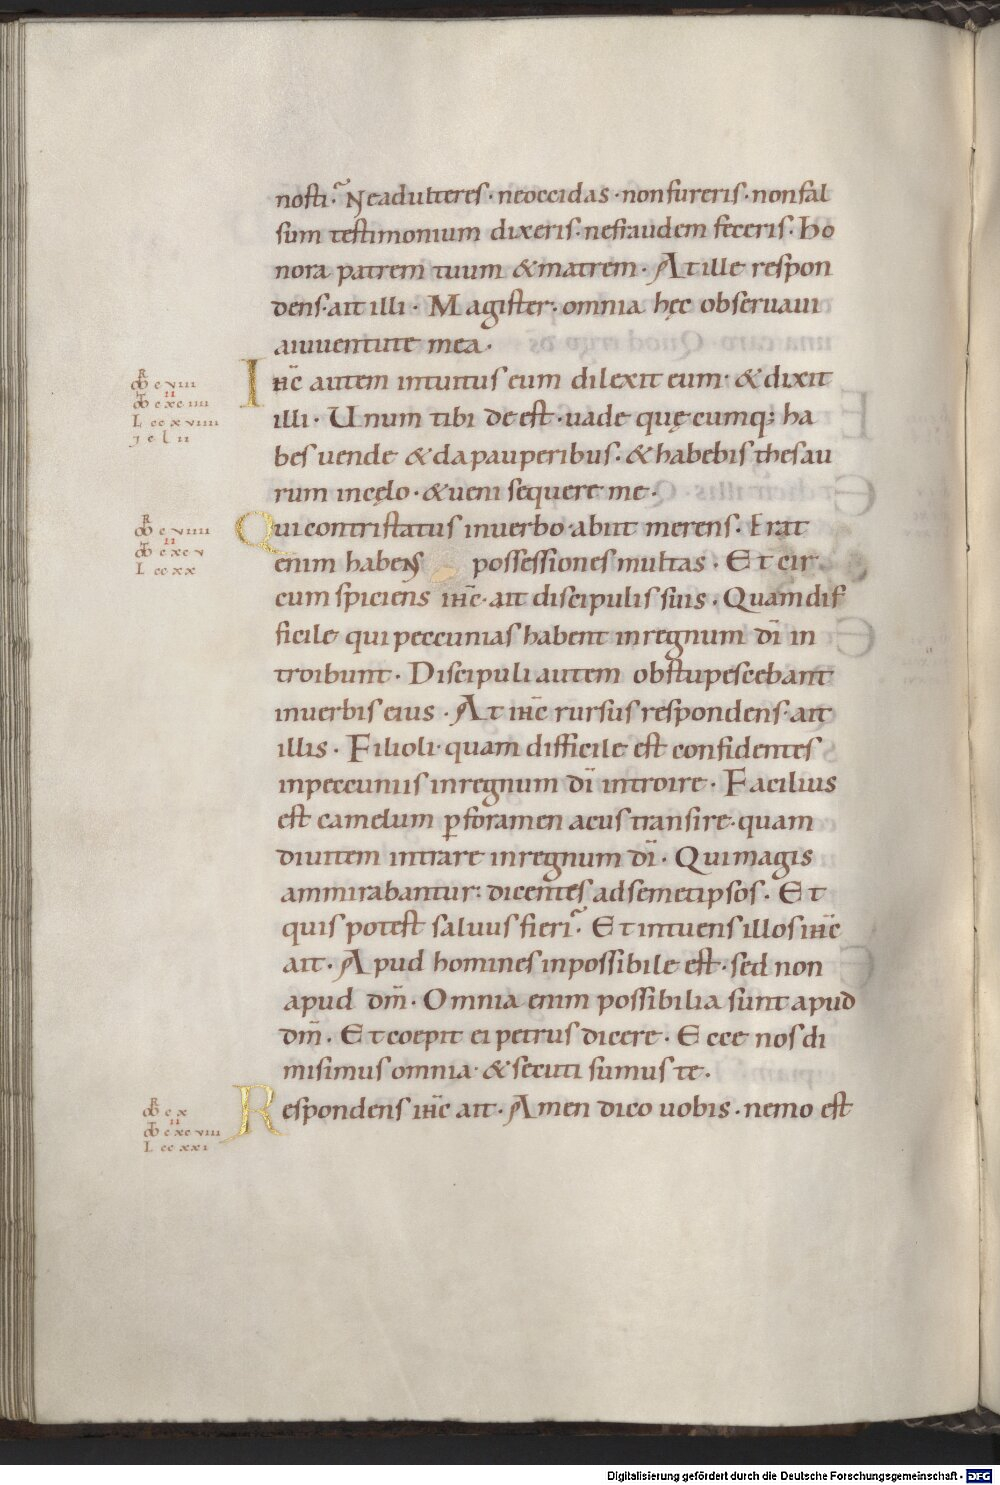 nosti. Ne adulteres · ne occidas · non fureris · non fal
sum testimonium dixeris · ne fraudem feceris · Ho
nora patrem tuum & matrem · At ille respon
dens · ait illi · Magister · omnia hęc observaui
a iuuentute mea ·
Ih̅c autem intuitus eum dilexit eum · & dixit
illi · Unum tibi de est · uade quęcumq; ha
bes uende & da pauperibus · & habebis thesau
rum in cęlo · & ueni sequere me ·
Qui contristatus in uerbo · abiit merens · Erat
enim habens possessiones multas · Et cir
cum spiciens ih̅c · ait discipulis suis · Quam dif
ficile qui peccunias habent in regnum di̅ in
troibunt · Discipuli autem obstupescebant
in uerbis eius · At ih̅c rursus respondens · ait
illis · Filioli · quam difficile est confidentes
in peccuniis in regnum di̅ introire · Facilius
est camelum ꝑ foramen acus transire · quam
diuitem intrare in regnum di̅ · Qui magis
ammirabantur : dicentes ad semetipsos · Et
quis potest saluus fieri. Et intuens illos ih̅c
ait · Apud homines inpossibile est · sed non
apud dm̅ · Omnia enim possibilia sunt apud
dm̅ · Et coepit ei petrus dicere · Ecce nos di
misimus omnia · & secuti sumus te ·
Respondens ih̅c ait · Amen dico uobis · nemo est
Digitalisierung gefördert durch die Deutsche Forschungsgemeinschaft - DFG